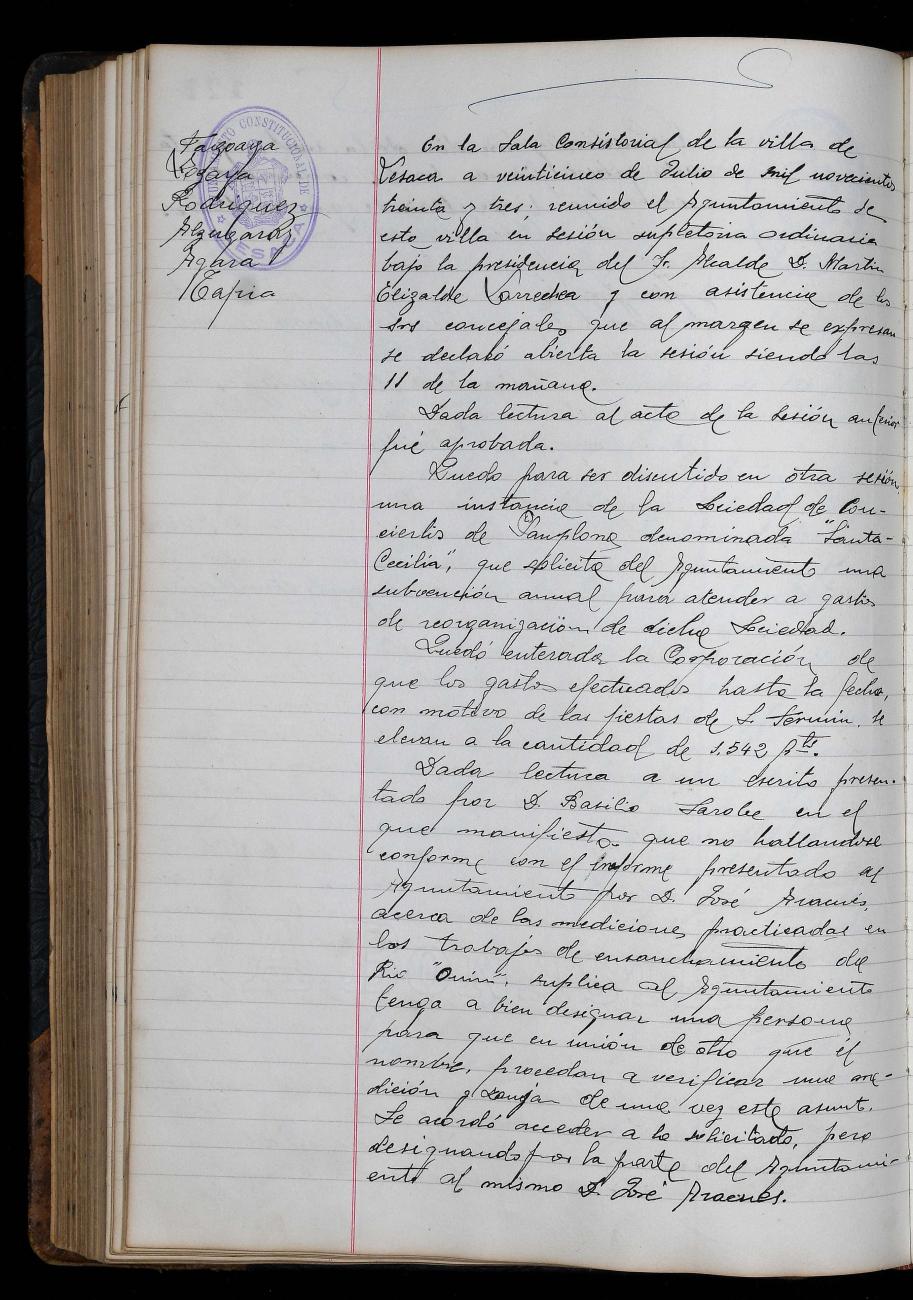 Taizoaya
Logaya
Rodriguez
Alzugaray
Agara
Tapia
AYUNTAMIENTO CONSTITUCIONAL DE
LESACA
En la Sala Consistorial de la villa de
Lesaca a veinticinco de Julio de mil novecientos
treinta y tres; reunido el Ayuntamiento de
esta villa en sesión supletoria ordinaria
bajo la presidencia del Sr. Alcalde D. Martin
Elizalde Larrechea y con asistencia de los
Srs concejales que al margen se expresan
se declaró abierta la sesión siendo las
11 de la mañana.
Dada lectura al acta de la sesión anterior
fué aprobada.
Quedo para ser discutido en otra sesión
una instancia de la Sociedad de Con-
ciertos de Pamplona denominada "Santa-
Cecilia", que solicita del Ayuntamiento una
subvención anual para atender a gastos
de reorganización de dicha Sociedad.
Quedó enterada la Corporación de
que los gastos efectuados hasta la fecha,
con motivo de las fiestas de S. Fermin, se
elevan a la cantidad de 1.542 pts.
Dada lectura a un escrito presen-
tado por D. Basilio Sarobe en el
que manifiesta que no hallandose
conforme con el informe presentado al
Ayuntamiento por D. José Aracues,
acerca de las mediciones practicadas en
los trabajos de ensanchamiento del
Rio "Onin", suplica al Ayuntamiento
tenga a bien designar una persona
para que en unión de otro que él
nombre, procedan a verificar una me-
dición y zanjar de una vez este asunt.
Se acordó acceder a lo solicitado, pero
designando por la parte del Ayuntami-
ento al mismo D. José Aracues.